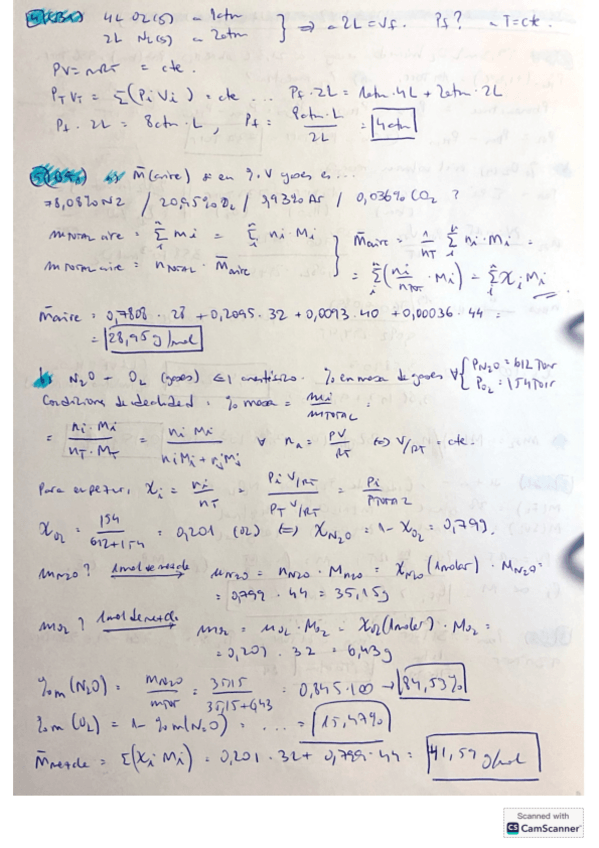 4L O2(g) a 1atm
2L N2(g) a 2atm } ⇒ a 2L = Vf. Pf? a T=cte.
PV = nRT = cte.
PT VT = Σ(Pi Vi) = cte ... Pf · 2L = 1atm · 4L + 2atm · 2L
Pf · 2L = 8atm · L, Pf = 8atm · L / 2L = 4atm
M̄(aire) si en % V gases es...
78,08% N2 / 20,95% O2 / 0,93% Ar / 0,036% CO2 ?
mTOTAL aire = Σ mi = Σ ni · Mi
mTOTAL aire = nTOTAL · M̄aire
M̄aire = 1/nT Σ ni · Mi =
= Σ(ni/nT · Mi) = Σ Xi Mi
M̄aire = 0,7808 · 28 + 0,2095 · 32 + 0,0093 · 40 + 0,00036 · 44 =
= 28,95 g/mol
b) N2O + O2 (gases) % en masa de gases ∀ { PN2O = 612 Torr
PO2 = 154 Torr
Condiciones de idealidad. % masa = mi / mTOTAL =
= ni · Mi / nT · MT = ni Mi / niMi + njMj ∀ na = PV/RT ⇔ V/RT = cte.
Para empezar, Xi = ni/nT = Pi V/RT / PT V/RT = Pi / PTOTAL
XO2 = 154 / 612+154 = 0,201 (O2) ⇔ XN2O = 1 - XO2 = 0,799.
mN2O? 1mol de mezcla → mN2O = nN2O · MN2O = XN2O (1molex) · MN2O =
= 0,799 · 44 = 35,15g
mO2? 1mol de mezcla → mO2 = nO2 · MO2 = XO2 (1molex) · MO2 =
= 0,201 · 32 = 6,43g
%m (N2O) = mN2O / mTOT = 35,15 / 35,15+6,43 = 0,845 · 100 → 84,53%
%m (O2) = 1 - %m(N2O) = .... = 15,47%
M̄mezcla = Σ(Xi Mi) = 0,201 · 32 + 0,799 · 44 = 41,59 g/mol
Scanned with
CS CamScanner